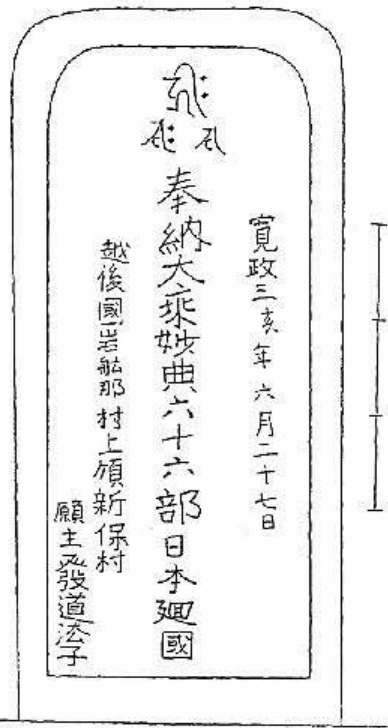 寛政三亥年六月二十七日
奉納大乘妙典六十六部日本廻國
越後國岩舩郡村上領新保村
願主發道法子